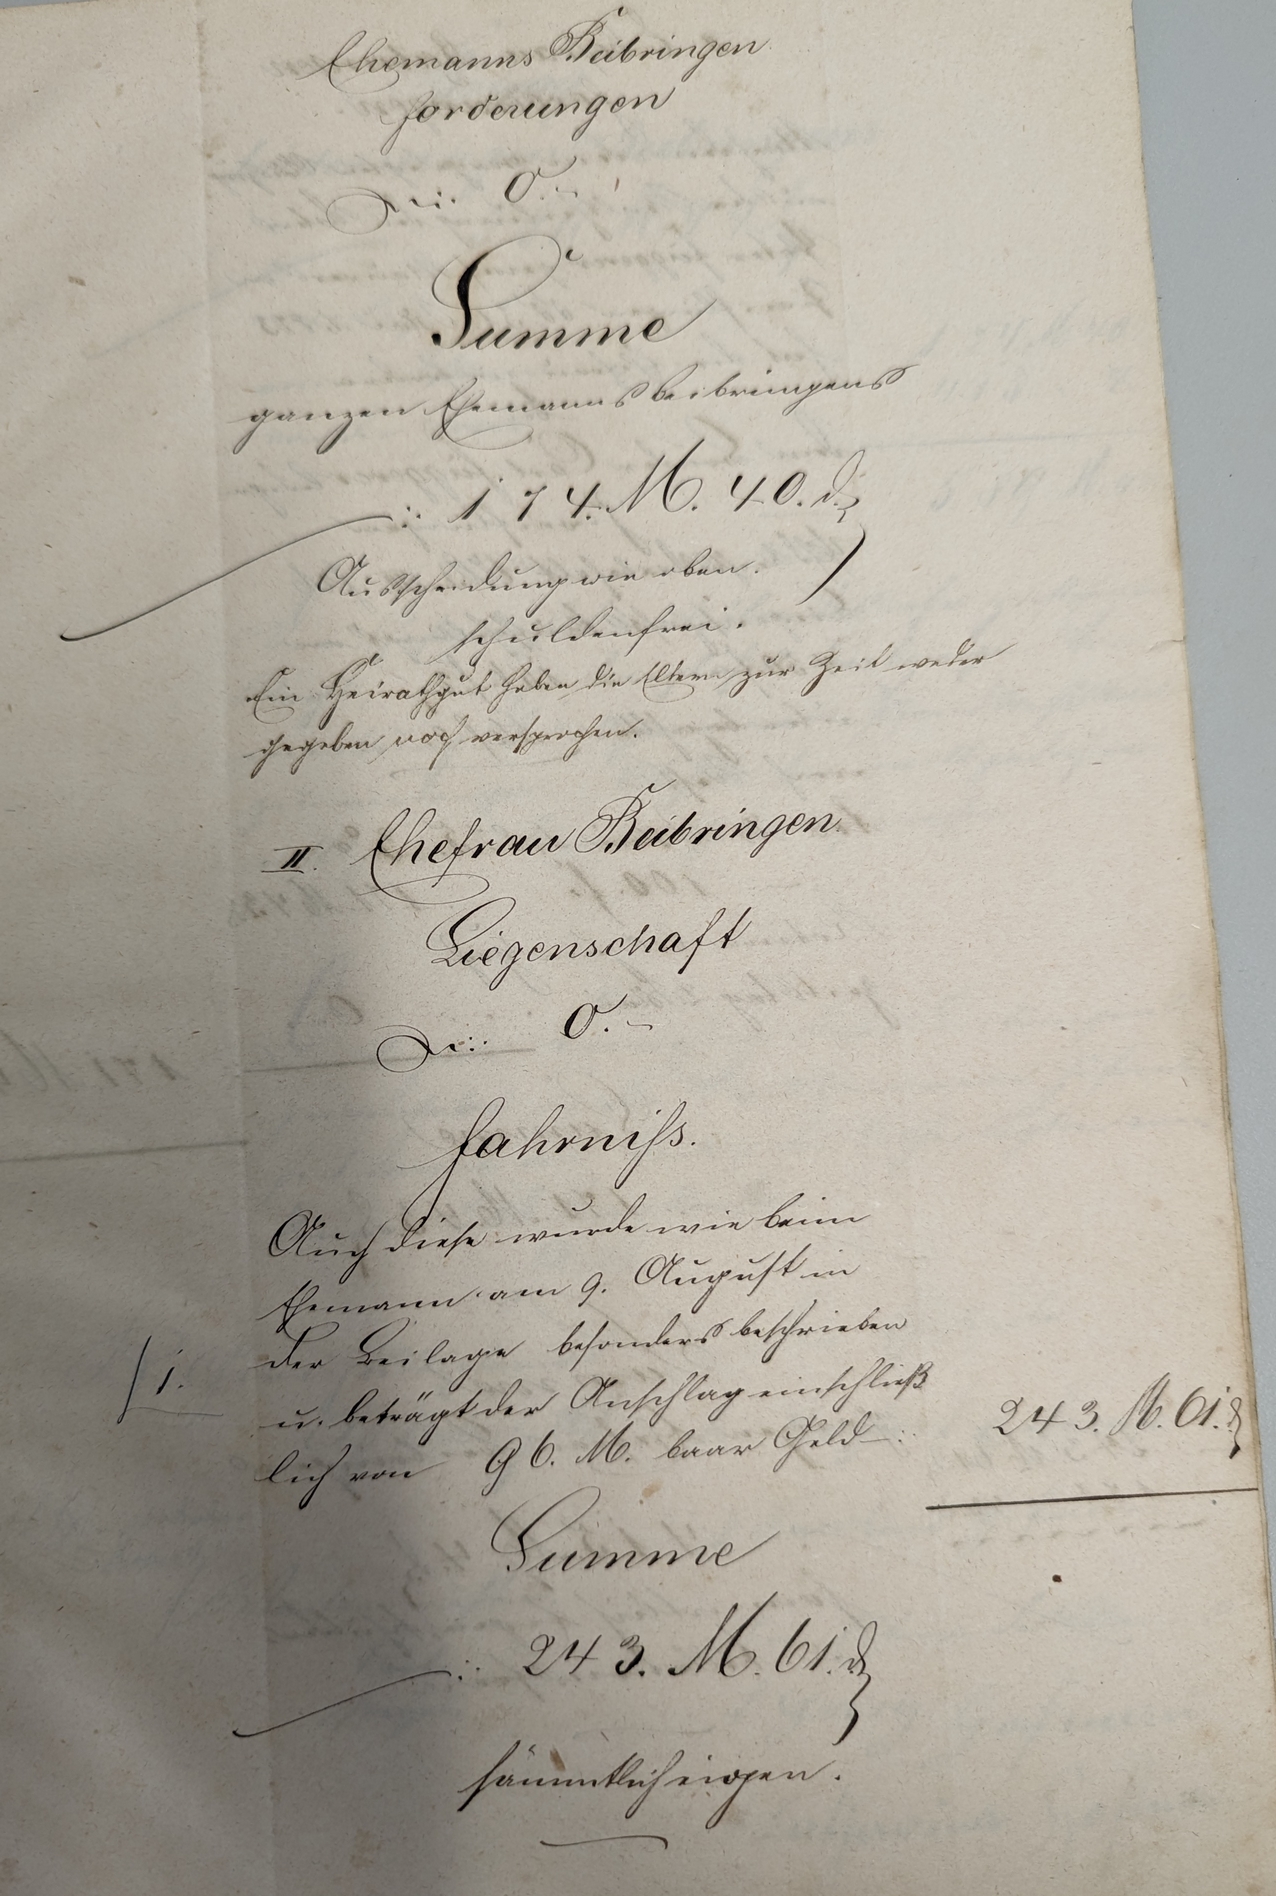 Ehemanns Beibringen
Forderungen
–: 0. –
Summe
ganzen Ehemannsbeibringens
–: 174. M. 40. d.
Ausscheidung wie oben.
schuldenfrei.
Ein Heirathgut haben die Eltern zur Zeit weder
gegeben noch versprochen.
II. Ehefrau Beibringen
Liegenschaft
–: 0. –
Fahrniss.
Auch diese wurde wie beim
Ehemann am 9. August in
der Beilage besonders beschrieben
1.
u. beträgt der Anschlag einschließ
lich von 96. M. baar Geld –: 243. M. 61. d.
Summe
–: 243. M. 61. d.
sämmtlich eigen.